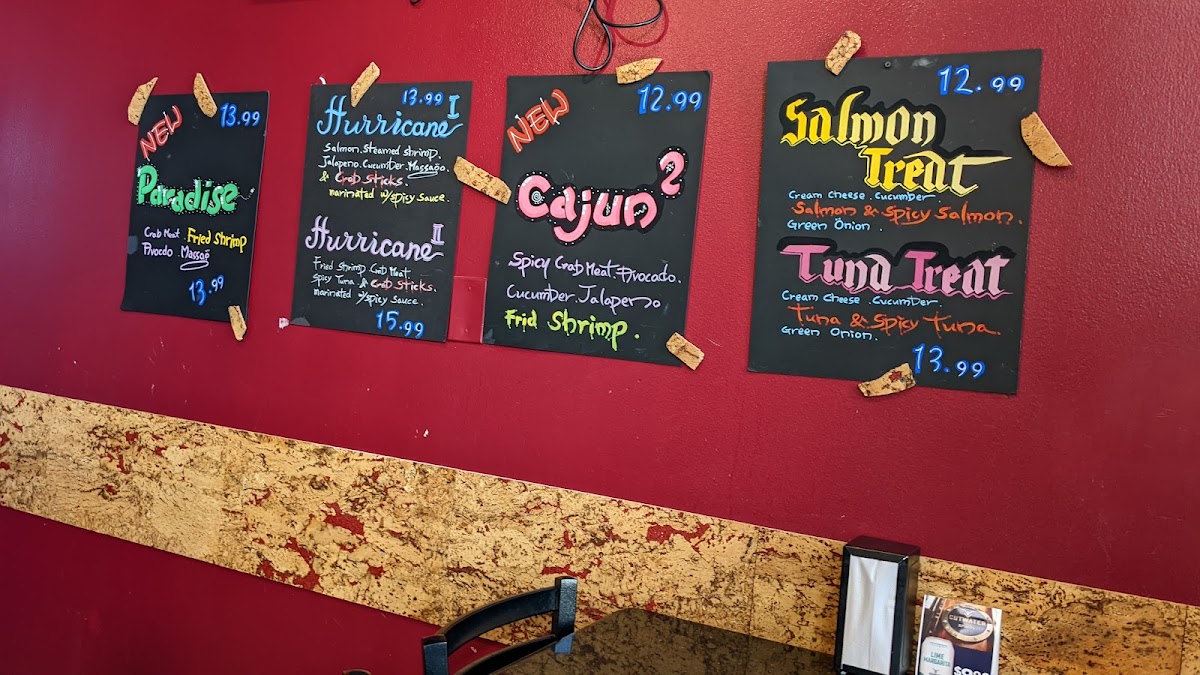 NEW
13.99
Paradise
Crab Meat. Fried Shrimp
Avocdo. Massago
13.99
13.99
Hurricane I
Salmon. Steamed Shrimp.
Jalapeno. Cucumber. Massago.
& Crab Sticks.
marinated w/spicy sauce.
Hurricane II
Fried Shrimp Crab Meat
Spicy Tuna & Crab Sticks.
marinated w/spicy sauce.
15.99
NEW
12.99
Cajun 2
Spicy Crab Meat. Avocado.
Cucumber. Jalapeno
Frid Shrimp.
12.99
Salmon
Treat
Cream cheese. cucumber
Salmon & Spicy Salmon.
Green Onion.
Tuna Treat
Cream Cheese. Cucumber.
Tuna & Spicy Tuna.
Green Onion.
13.99
CUTWATER
LIME
MARGARITA